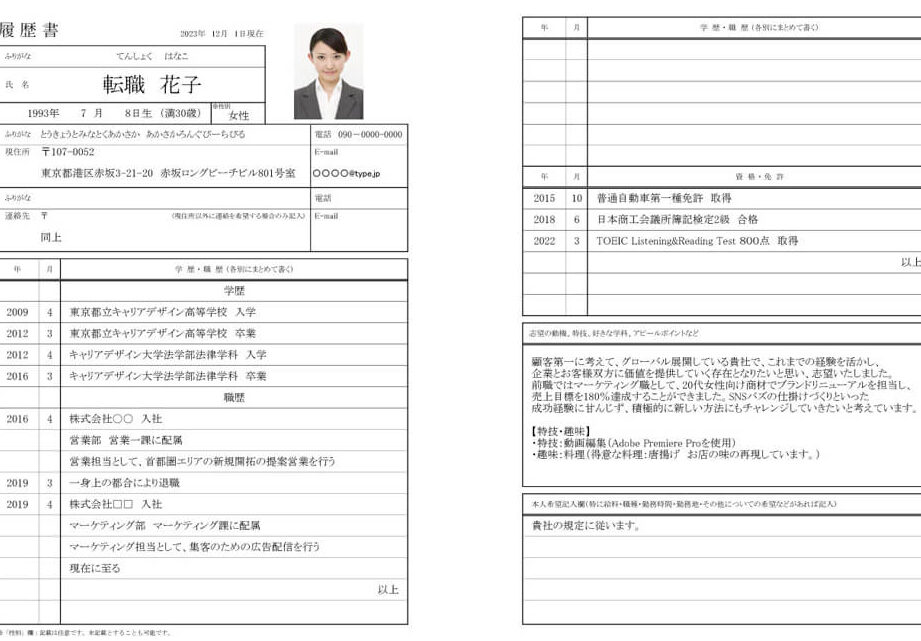 履歴書
2023年 12月 1日現在
ふりがな てんしょく はなこ
氏 名 転職 花子
1993年 7 月 8日生 (満30歳) ※性別 女性
ふりがな とうきょうとみなとくあかさか あかさかろんぐびーちびる 電話 090-0000-0000
現住所 〒107-0052 E-mail
東京都港区赤坂3-21-20 赤坂ロングビーチビル801号室 〇〇〇〇@type.jp
ふりがな 電話
連絡先 〒 (現住所以外に連絡を希望する場合のみ記入) E-mail
同上
年 月 学 歴・職 歴 (各別にまとめて書く)
学歴
2009 4 東京都立キャリアデザイン高等学校 入学
2012 3 東京都立キャリアデザイン高等学校 卒業
2012 4 キャリアデザイン大学法学部法律学科 入学
2016 3 キャリアデザイン大学法学部法律学科 卒業
職歴
2016 4 株式会社〇〇 入社
営業部 営業一課に配属
営業担当として、首都圏エリアの新規開拓の提案営業を行う
2019 3 一身上の都合により退職
2019 4 株式会社□□ 入社
マーケティング部 マーケティング課に配属
マーケティング担当として、集客のための広告配信を行う
現在に至る
以上
「性別」欄：記載は任意です。未記載とすることも可能です。
年 月 学 歴・職 歴 (各別にまとめて書く)
年 月 資 格・免 許
2015 10 普通自動車第一種免許 取得
2018 6 日本商工会議所簿記検定2級 合格
2022 3 TOEIC Listening&Reading Test 800点 取得
以上
志望の動機、特技、好きな学科、アピールポイントなど
顧客第一に考えて、グローバル展開している貴社で、これまでの経験を活かし、
企業とお客様双方に価値を提供していく存在となりたいと思い、志望いたしました。
前職ではマーケティング職として、20代女性向け商材でブランドリニューアルを担当し、
売上目標を180%達成することができました。SNSバズの仕掛けづくりといった
成功経験に甘んじず、積極的に新しい方法にもチャレンジしていきたいと考えています。
【特技・趣味】
・特技：動画編集（Adobe Premiere Proを使用）
・趣味：料理（得意な料理：唐揚げ お店の味の再現しています。）
本人希望記入欄(特に給料・職種・勤務時間・勤務地・その他についての希望などがあれば記入)
貴社の規定に従います。